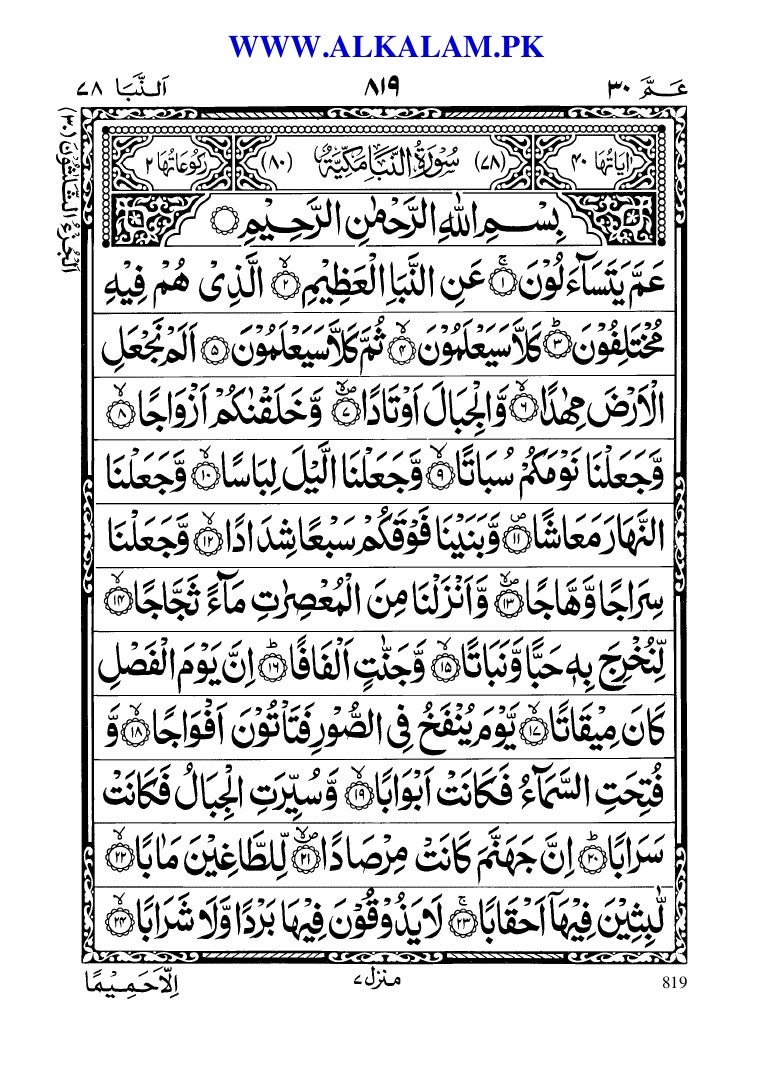 WWW.ALKALAM.PK
عَـمَّ ٣٠ ٨١٩ اَلـنَّبَا ٧٨
اَلْجُزْءُ الثَّلَاثُوْنَ (٣٠)
اٰیَاتُهَا ٤٠ (٧٨) سُوْرَةُ النَّبَاِ مَكِّیَّةٌ (٨٠) رُكُوْعَاتُهَا ٢
بِسْمِ اللّٰهِ الرَّحْمٰنِ الرَّحِیْمِ
عَمَّ یَتَسَآءَلُوْنَ ۚ﴿١﴾ عَنِ النَّبَاِ الْعَظِیْمِ ۙ﴿٢﴾ الَّذِیْ هُمْ فِیْهِ
مُخْتَلِفُوْنَ ؕ﴿٣﴾ كَلَّا سَیَعْلَمُوْنَ ۙ﴿٤﴾ ثُمَّ كَلَّا سَیَعْلَمُوْنَ ﴿٥﴾ اَلَمْ نَجْعَلِ
الْاَرْضَ مِهٰدًا ۙ﴿٦﴾ وَّالْجِبَالَ اَوْتَادًا ۪ۙ﴿٧﴾ وَّخَلَقْنٰكُمْ اَزْوَاجًا ۙ﴿٨﴾
وَّجَعَلْنَا نَوْمَكُمْ سُبَاتًا ۙ﴿٩﴾ وَّجَعَلْنَا الَّیْلَ لِبَاسًا ۙ﴿١٠﴾ وَّجَعَلْنَا
النَّهَارَ مَعَاشًا ۪﴿١١﴾ وَّبَنَیْنَا فَوْقَكُمْ سَبْعًا شِدَادًا ۙ﴿١٢﴾ وَّجَعَلْنَا
سِرَاجًا وَّهَّاجًا ۪ۙ﴿١٣﴾ وَّاَنْزَلْنَا مِنَ الْمُعْصِرٰتِ مَآءً ثَجَّاجًا ۙ﴿١٤﴾
لِّنُخْرِجَ بِهٖ حَبًّا وَّنَبَاتًا ۙ﴿١٥﴾ وَّجَنّٰتٍ اَلْفَافًا ؕ﴿١٦﴾ اِنَّ یَوْمَ الْفَصْلِ
كَانَ مِیْقَاتًا ۙ﴿١٧﴾ یَّوْمَ یُنْفَخُ فِی الصُّوْرِ فَتَاْتُوْنَ اَفْوَاجًا ۙ﴿١٨﴾ وَّ
فُتِحَتِ السَّمَآءُ فَكَانَتْ اَبْوَابًا ۙ﴿١٩﴾ وَّسُیِّرَتِ الْجِبَالُ فَكَانَتْ
سَرَابًا ؕ﴿٢٠﴾ اِنَّ جَهَنَّمَ كَانَتْ مِرْصَادًا ۪ۙ﴿٢١﴾ لِّلطَّاغِیْنَ مَاٰبًا ۙ﴿٢٢﴾
لّٰبِثِیْنَ فِیْهَاۤ اَحْقَابًا ۚ﴿٢٣﴾ لَا یَذُوْقُوْنَ فِیْهَا بَرْدًا وَّلَا شَرَابًا ۙ﴿٢٤﴾
819 منزل ٧ اِلَّا حَمِـیْـمًا